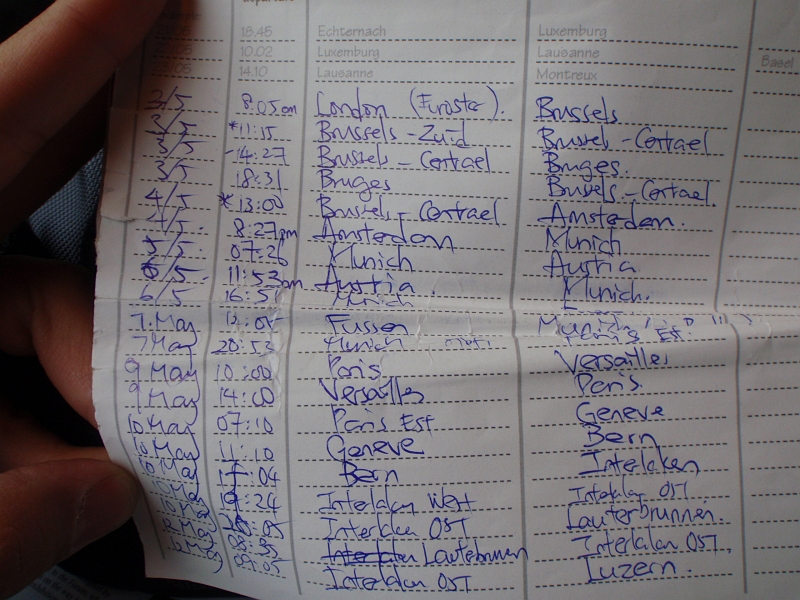 18.45 Echternach Luxemburg
10.02 Luxemburg Lausanne Basel
14.10 Lausanne Montreux
3/5 8:05am London (Eurostar). Brussels
3/5 *11:15 Brussels-Zuid Brussel-Centrael
3/5 14:27 Brussels-Centrael Bruges.
3/5 18:31 Bruges Brussels-Centrael.
4/5 *13:00 Brussels-Centrael Amsterdam.
4/5. 8:27pm Amsterdam Munich
5/5. 07:26 Munich Austria
5/5. 11:53am Austria Munich.
6/5 16:51 Munich
7.May 12:05 Fussen Munich
7May 20:53 Munich Paris Est
9 May 10:00 Paris Versailles
9 May 14:00 Versailles Paris
10 May 07:10 Paris Est Geneve
10 May 11:10 Geneve Bern
10 May 17:04 Bern Interlaken
10 May 19:24 Interlaken West Interlaken OST
10 May 20:05 Interlaken OST Lauterbrunnen.
12 May 08:35 Lauterbrunnen Interlaken OST.
12 May 09:05 Interlaken OST Luzern.